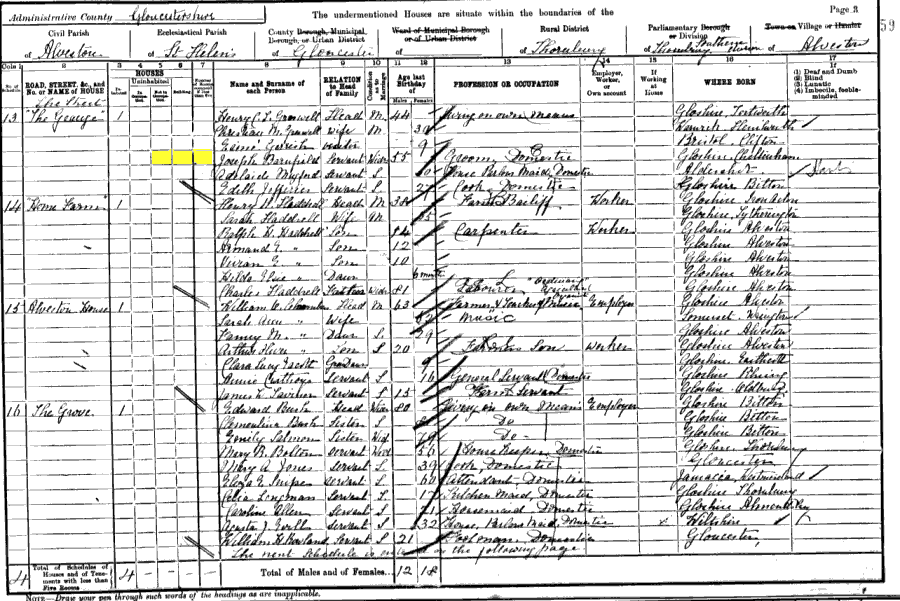 Administrative County Gloucestershire
The undermentioned Houses are situate within the boundaries of the
Page 3
59
Civil Parish
of Alveston
Ecclesiastical Parish
of St Helen's
County Borough, Municipal Borough, or Urban District
of Gloucester
Ward of Municipal Borough or of Urban District
of
Rural District
of Thornbury
Parliamentary Borough or Division
of Thornbury Southern Division
Town or Village or Hamlet
of Alveston
Cols. 1 2 3 4 5 6 7 8 9 10 11 12 13 14 15 16 17
No. of Schedule
ROAD, STREET, &c., and No. or NAME of HOUSE
HOUSES
Inhabited
Uninhabited
In Occupation
Not in Occupation
Building
Number of Rooms occupied if less than five
Name and Surname of each Person
RELATION to Head of Family
Condition as to Marriage
Age last Birthday of
Males
Females
PROFESSION OR OCCUPATION
Employer, Worker, or Own account
If Working at Home
WHERE BORN
(1) Deaf and Dumb
(2) Blind
(3) Lunatic
(4) Imbecile, feeble-minded
The Street
13 "The George" 1 Henry Head M 44 Living on own means Gloshire, Tortworth
wife M
visitor 9 Bristol, Clifton
Joseph Barnfield Servant Widr 55 Groom, Domestic Gloshire, Cheltenham
Adelaide Servant S House Parlour Maid, Domestic Aldershot
Edith Jefferies Servant S 27 Cook, Domestic Gloshire Bitton
14 Home Farm 1 Henry W. Haddrell Head M 38 Farm Bailiff Worker Gloshire Iron Acton
Sarah Haddrell Wife M 35 Gloshire Tytherington
Ralph W. Haddrell Son 14 Carpenter Worker Gloshire Alveston
Armand E. " Son 12 Gloshire Alveston
Vivian E. " Son 10 Gloshire Alveston
Hilda Elsie " Daur 6 months Gloshire Alveston
Charles Haddrell Father Widr 81 Labourer Gloshire Alveston
15 Alveston House 1 William Head M 63 Farmer & Teacher of Music Employer Gloshire Alveston
Sarah Ann " Wife 62 Music Somerset
Fanney M. " Daur S. 29 Gloshire Alveston
Arthur " Son S 20 Farmers Son Worker Gloshire Alveston
Clara Lucy Gloshire
Annie Servant S 16 General Servant Domestic Gloshire
James Servant S 15 Farm Servant Gloshire Oldbury
16 The Grove 1 Edward Burst Head Widr 80 Living on own Means Employer Gloshire Bitton
Clementina Burst Sister S Do Gloshire Bitton
Emily Salmon Sister Wid Do Gloshire Bitton
Mary R. Bolton servant Wid 56 Housekeeper, Domestic Gloshire, Thornbury
Mary A Jones servant S 39 Cook, Domestic Gloucester
servant S 60 Attendant Domestic Jamaica, Westmoreland
Celia Longman Servant S 17 Kitchen Maid, Domestic Gloshire Thornbury
Caroline Allen Servant S 21 Housemaid Domestic Gloshire Almondsbury
servant S 32 House, Parlour Maid, Domestic Wiltshire
William H Rowland Servant S 21 Footman Domestic Gloucester,
The next Schedule is on the following page
4
Total of Schedules of Houses and of Tenements with less than Five Rooms
4 – – – –
Total of Males and of Females... 12 18
NOTE—Draw your pen through such words of the headings as are inapplicable.